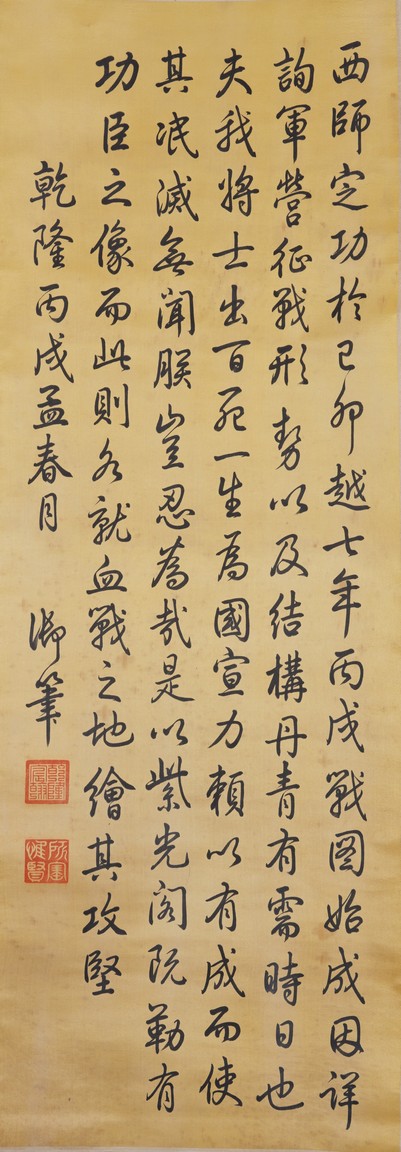 西師定功於己卯越七年丙戌戰圖始成因詳
詢軍營征戰形勢以及結構丹青有需時日也
夫我將士出百死一生為國宣力賴以有成而使
其泯滅無聞朕豈忍為哉是以紫光閣既勒有
功臣之像而此則各就血戰之地繪其攻堅
乾隆丙戌孟春月 御筆
乾隆宸翰
所寶惟賢